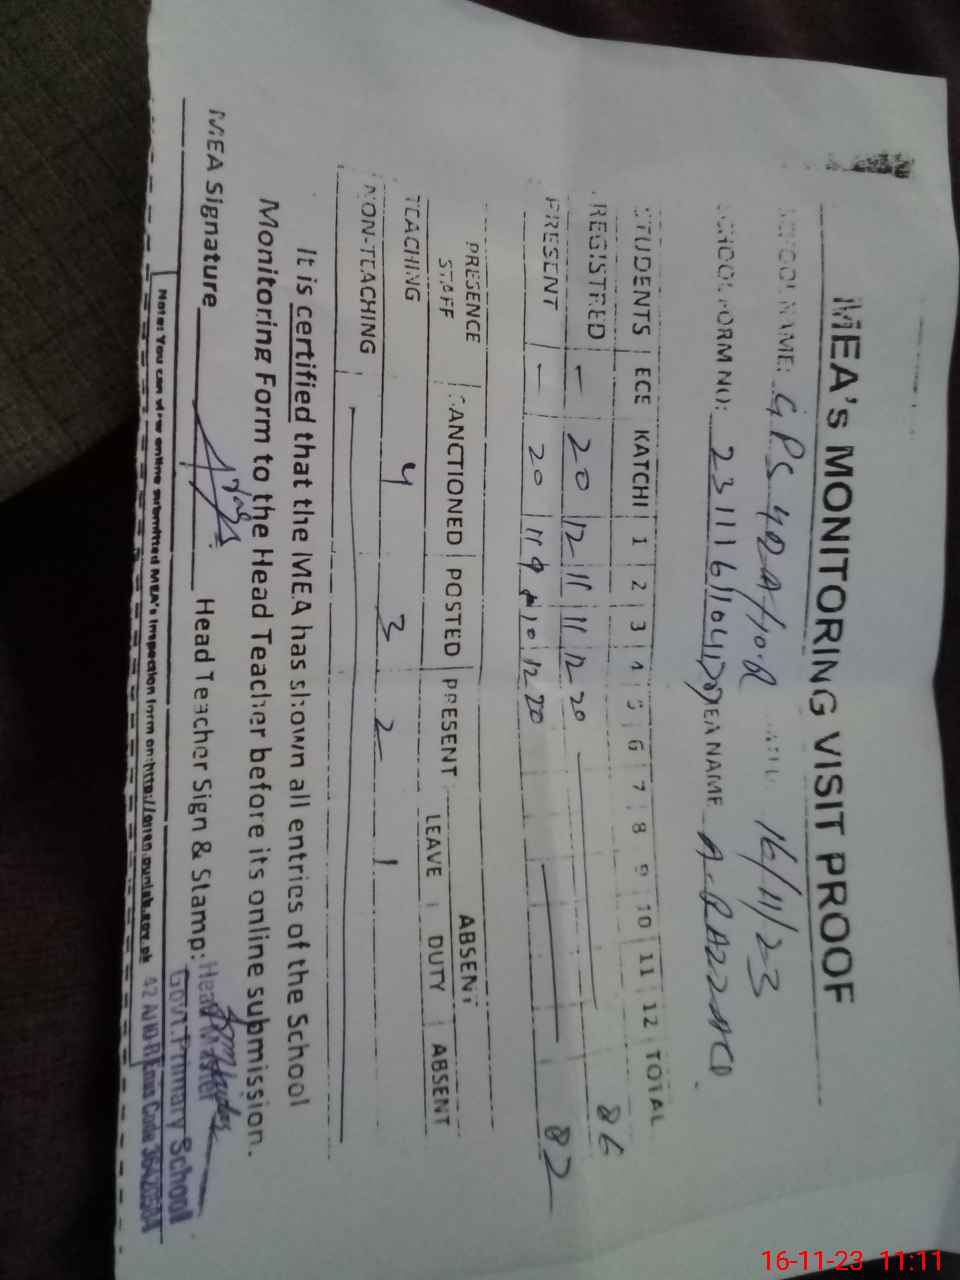 MEA's MONITORING VISIT PROOF
SCHOOL NAME: GPS 42A/10.R DATE 16/11/23
SCHOOL FORM NO: MEA NAME A. RAZZAQ
STUDENTS ECE KATCHI 1 2 3 4 5 6 7 8 9 10 11 12 TOTAL
REGISTRED — 20 12 11 11 12 20 86
PRESENT — 20 11 9 10 12 20 82
PRESENCE STAFF SANCTIONED POSTED PRESENT ABSENT
LEAVE DUTY ABSENT
TEACHING 4 3 2 1
NON-TEACHING
It is certified that the MEA has shown all entries of the School
Monitoring Form to the Head Teacher before its online submission.
MEA Signature Head Teacher Sign & Stamp:
Head Master
Govt. Primary School
42 A/10-R Emis Code 36420504
Note: You can view online submitted MEA's Inspection form on:http://open.punjab.gov.pk
16-11-23 11:11